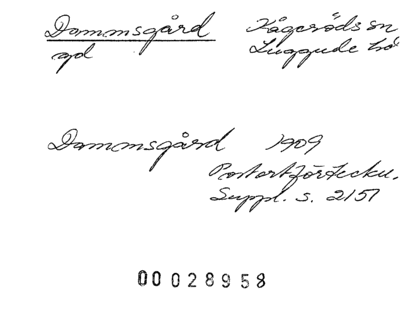 Dammsgård Kågeröds sn
gd Luggude hd
Dammsgård 1909
Postortförteckn.
Suppl. s. 2151
00028958